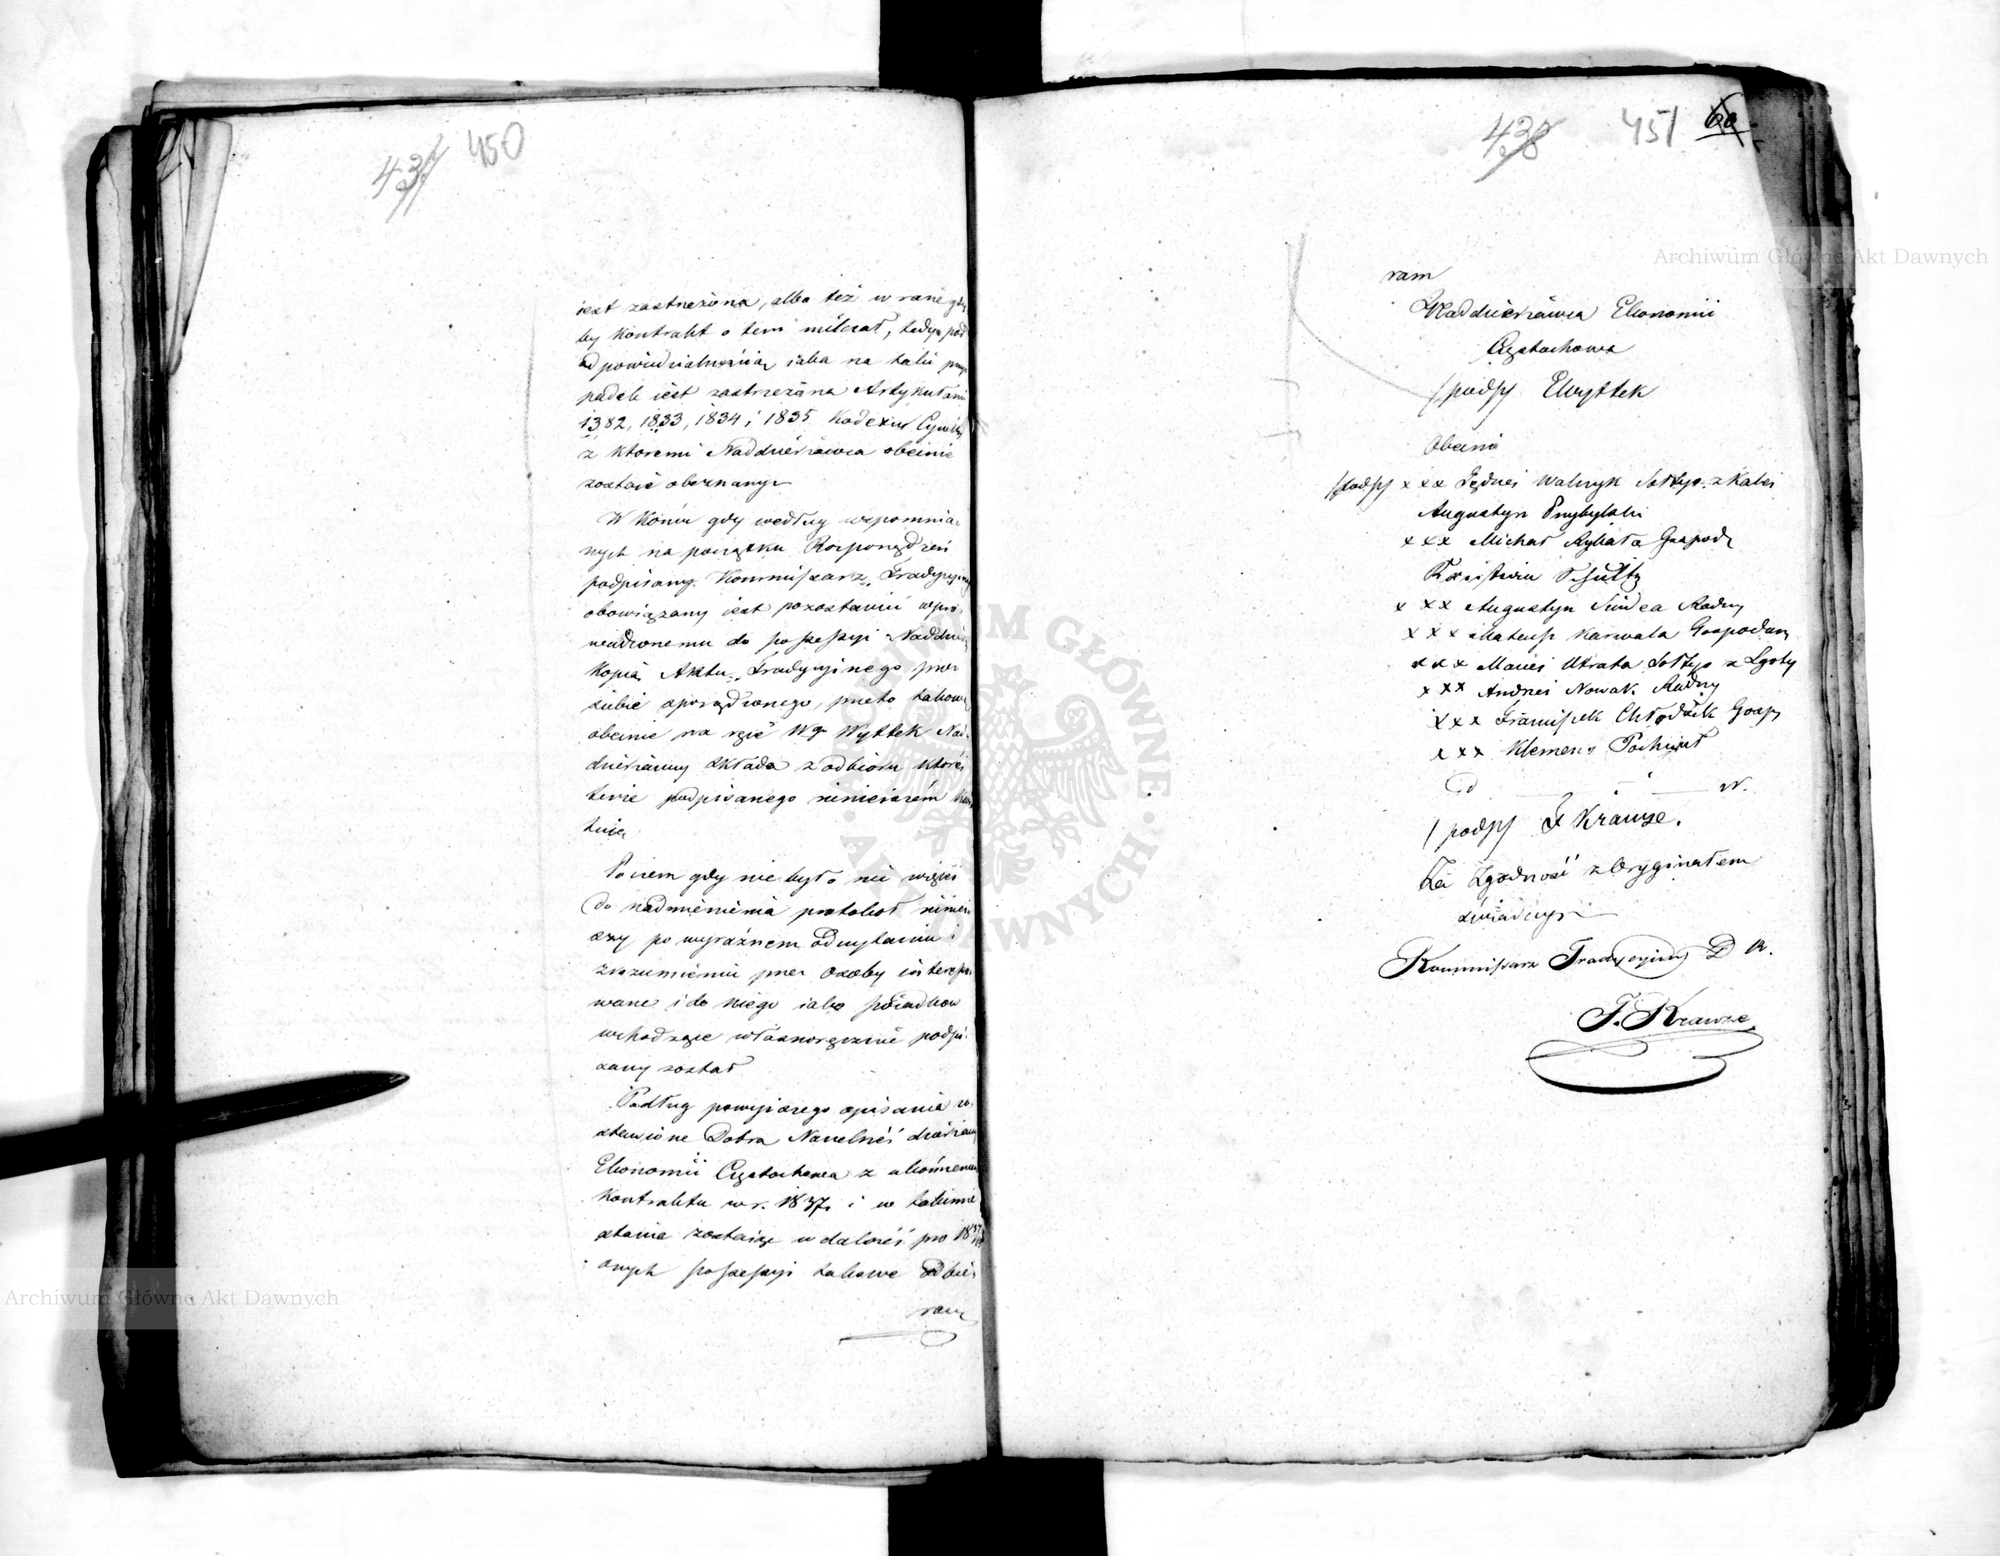 437 450
iest zastrzeżona, albo też w razie gdy
by Kontrakt o tem milczał, tedy pod
odpowiedzialnością iaka na taki przy
padek iest zastrzeżona Artykułami
1382, 1833, 1834 i 1835 Kodexu Cywil
z ktoremi Naddzierżawca obecnie
zostaie obeznany
W Końcu gdy według wspomnia-
nych na początku Rosporządzeń
podpisany Kommissarz Tradycyiny
obowiązany iest pozostawić wpro-
wadzonemu do possessyi Naddzier
Kopią Aktu Tradycyinego przez
siebie sporządzonego, przeto takową
obecnie na ręce Wgo Wyttek Nad-
dzierżawcy składa z odbioru ktorej
tenże podpisanego niniejszém kwi
tuie
Poczem gdy nie było nic więcéi
do nadmienienia protokoł niniei
szy po wyraźnem odczytaniu i
zrozumieniu przez osoby interesso
wane i do niego iako świadkow
wchodzące własnoręcznie podpi-
sany został
Podług powyższego opisania
stawione Dobra Narodowe dzierżawy
Ekonomii Częstochowa z ukończeniem
Kontraktu w r. 1837 i w takimże
stanie zostaiące w dalszéi pro 1837/
onych possessyi takowe Odbie-
ram
438 451 60
ram
Naddzierżawca Ekonomii
Częstochowa
/podps/ Elwyttek
Obecni
/podps/ x x x Jędrzei Walczyk Sołtys z Kalei
Augustyn Przybylski
x x x Michał Rybata Gospod
Krisztian Schultz
x x x Augustyn Radny
x x x Mateusz Karwala Gospodarz
x x x Maciei Utrata Sołtys z Lgoty
x x x Andrzei Nowak Radny
x x x Franciszek Chłodzik Gosp
x x x Klemens
/podps/ F Krauze.
Za Zgodność z Oryginałem
świadczy
Kommissarz Tradycyiny D N.
F. Krauze
Archiwum Główne Akt Dawnych
Archiwum Główne Akt Dawnych
ARCHIWUM GŁÓWNE · AKT DAWNYCH ·